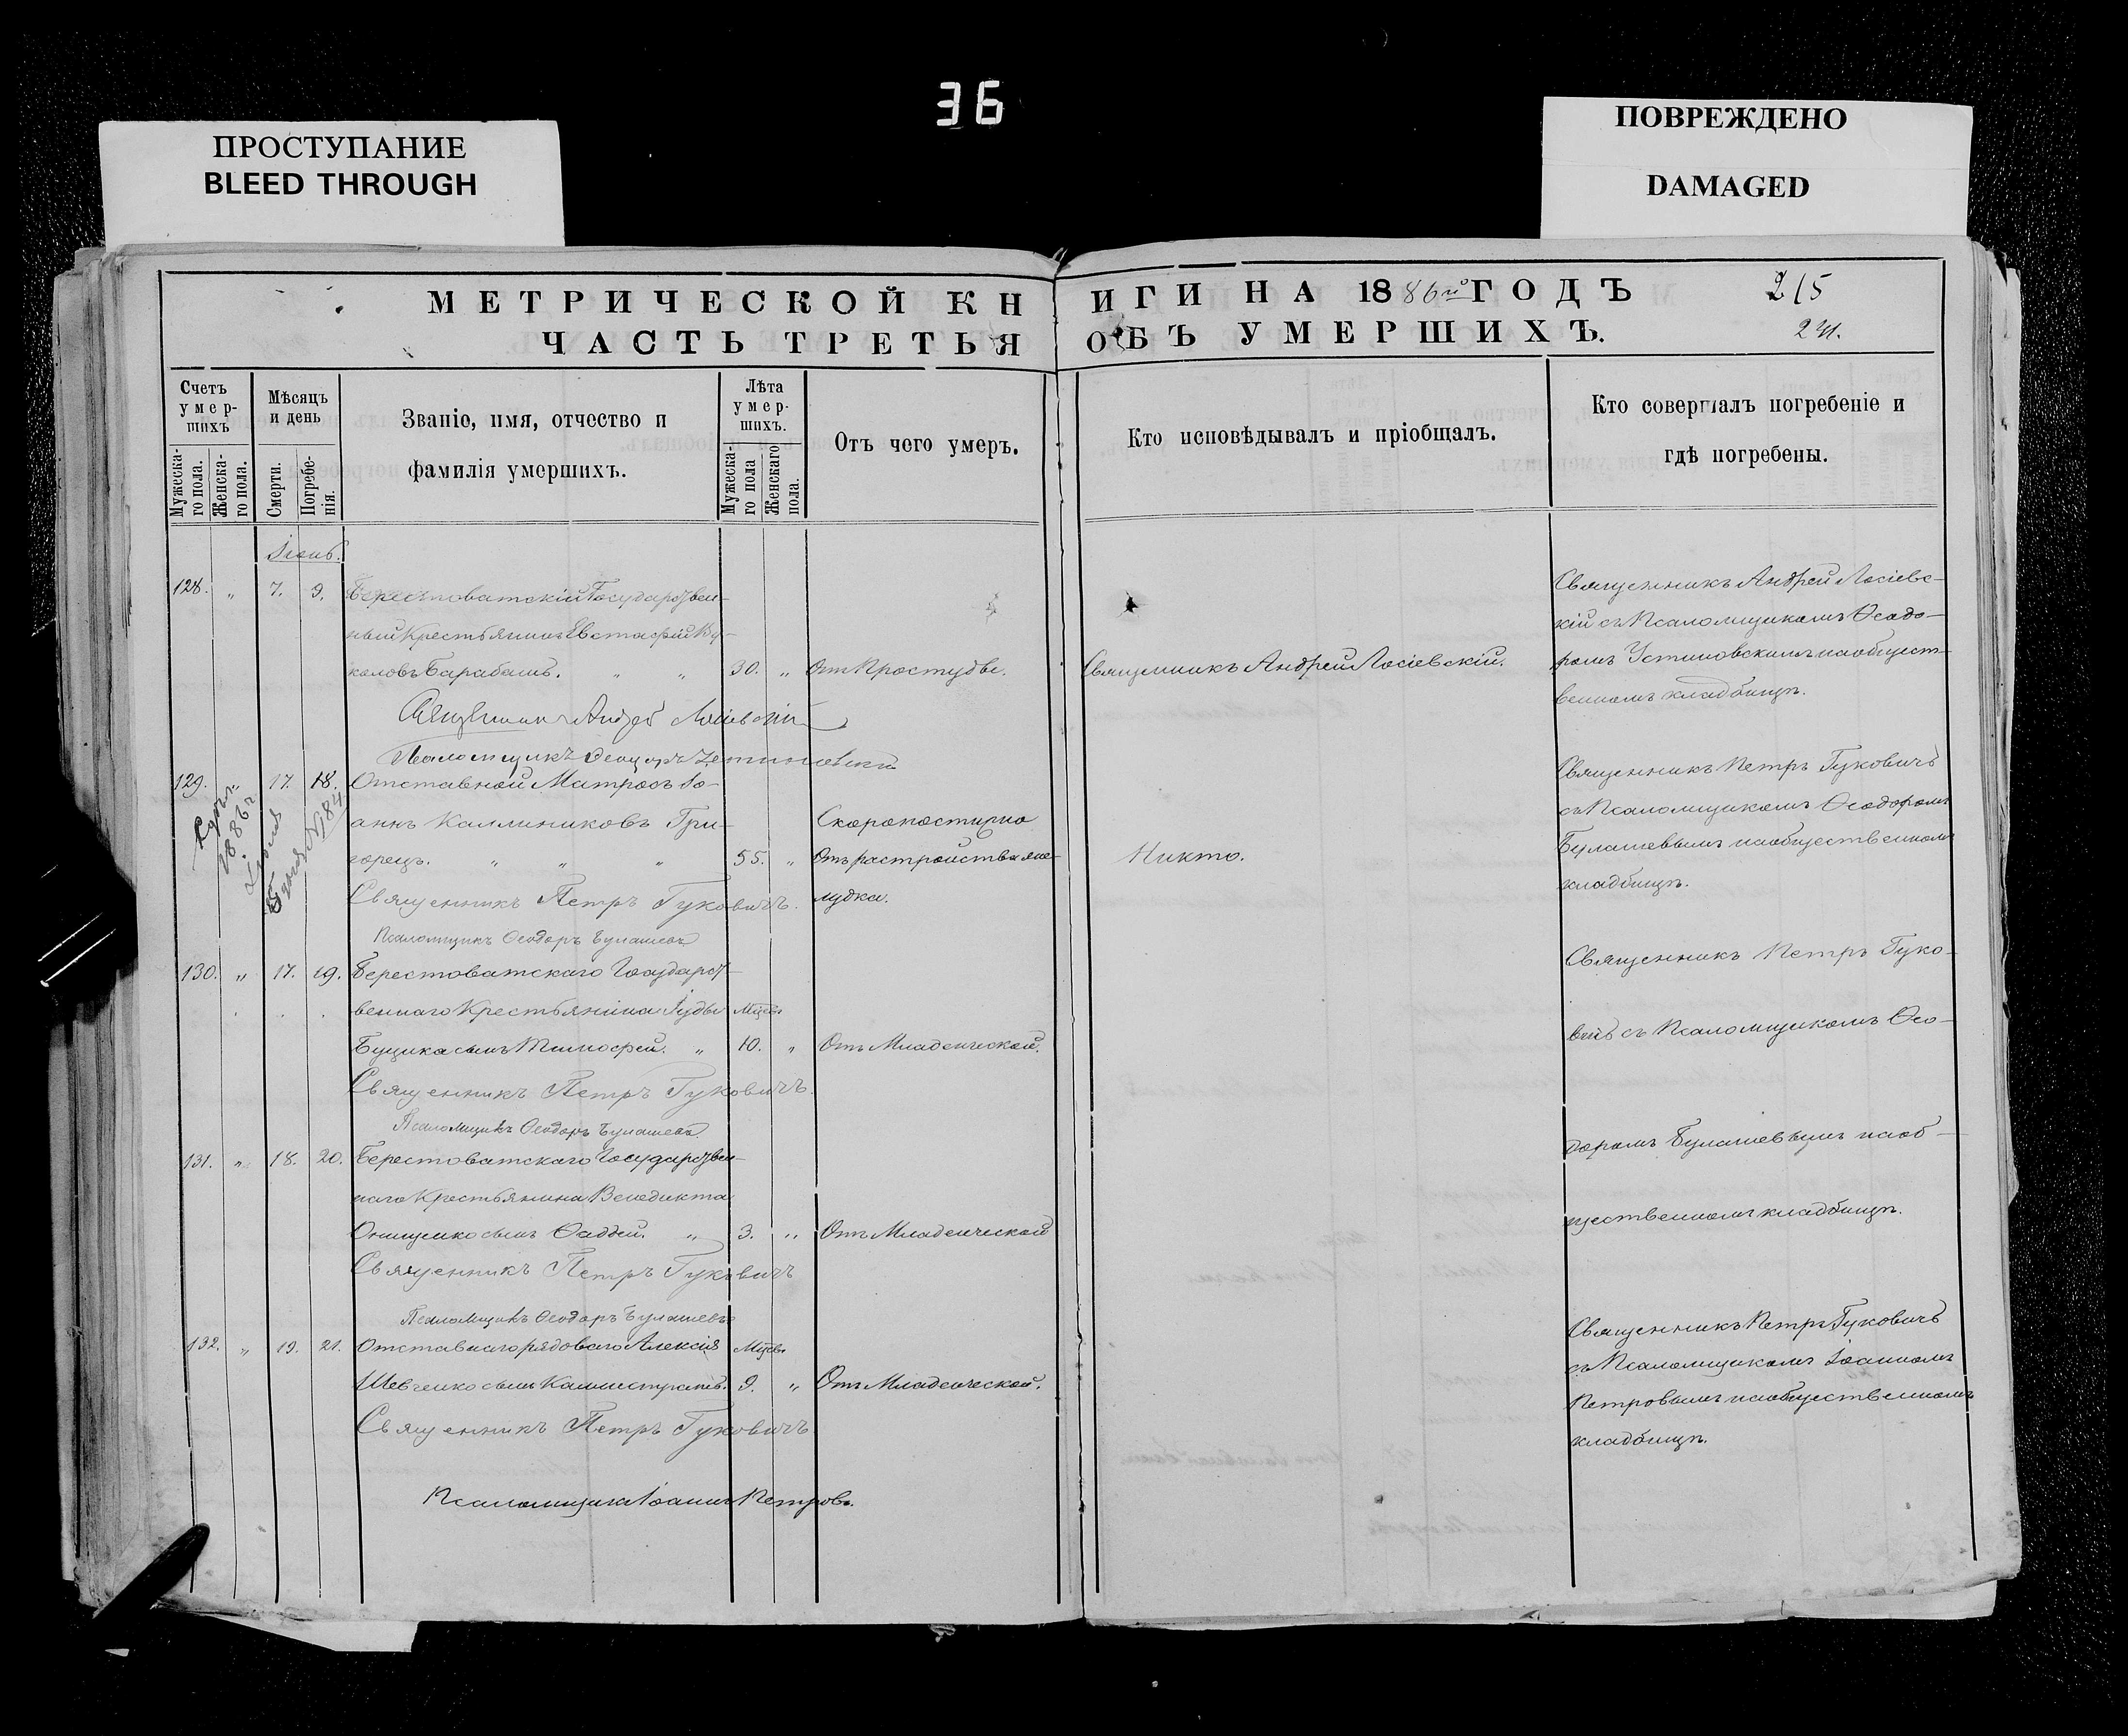 36
ПРОСТУПАНИЕ
BLEED THROUGH
ПОВРЕЖДЕНО
DAMAGED
МЕТРИЧЕСКОЙ КНИГИ НА 1886й ГОДЪ
215
ЧАСТЬ ТРЕТЬЯ ОБЪ УМЕРШИХЪ.
Счетъ умер-шихъ
Мужеска-го пола.
Женска-го пола.
Мѣсяцъ и день
Смерти.
Погребе-нія.
Званіе, имя, отчество и
фамилія умершихъ.
Лѣта умер-шихъ.
Мужеска-го пола
Женскаго пола.
Отъ чего умеръ.
Кто исповѣдывалъ и пріобщалъ.
Кто совершалъ погребеніе и
гдѣ погребены.
128. " 7. 9. Берестоватскій Государствен-
ный Крестьянинъ Евстафій
Барабашъ. " " 30. " Отъ Простуды.
Священникъ Андрей Лосіевскій.
Священникъ Андрей Лосіевс-
кій съ Псаломщикомъ Ѳеодо-
ромъ Устиновскимъ на общест-
венномъ кладбищѣ.
Священникъ Андрей Лосіевскій
Псаломщикъ Ѳеодоръ Устиновскій
129. " 17. 18. Отставной Матросъ Іо-
аннъ Калиниковъ Гри-
горецъ. " " " 55. "
Скоропостижно
Отъ растройства же-
лудка.
Никто.
Священникъ Петръ Гуковичъ
съ Псаломщикомъ Ѳеодоромъ
Булашевымъ на общественномъ
кладбищѣ.
1886 г.
Священникъ Петръ Гуковичъ.
Псаломщикъ Ѳеодоръ Булашевъ
130. " 17. 19. Берестоватскаго Государст-
веннаго Крестьянина Іуды Мѣсяц.
Буцика сынъ Тимофей. " 10. " Отъ Младенческой.
Священникъ Петръ Гуковичъ.
Псаломщикъ Ѳеодоръ Булашевъ
131. " 18. 20. Берестоватскаго Государствен-
наго Крестьянина Венедикта
Онищенко сынъ Ѳаддей. " 3. " Отъ Младенческой
Священникъ Петръ Гуковичъ
Псаломщикъ Ѳеодоръ Булашевъ
Священникъ Петръ Гуко-
вичъ съ Псаломщикомъ Ѳео-
доромъ Булашевымъ на об-
щественномъ кладбищѣ.
132. " 19. 21. Отставнаго рядоваго Алексія Мѣсяц.
Шевченко сынъ Каллистратъ. 9. " Отъ Младенческой.
Священникъ Петръ Гуковичъ
Псаломщикъ Іоаннъ Петровъ.
Священникъ Петръ Гуковичъ
съ Псаломщикомъ Іоанномъ
Петровымъ на общественномъ
кладбищѣ.